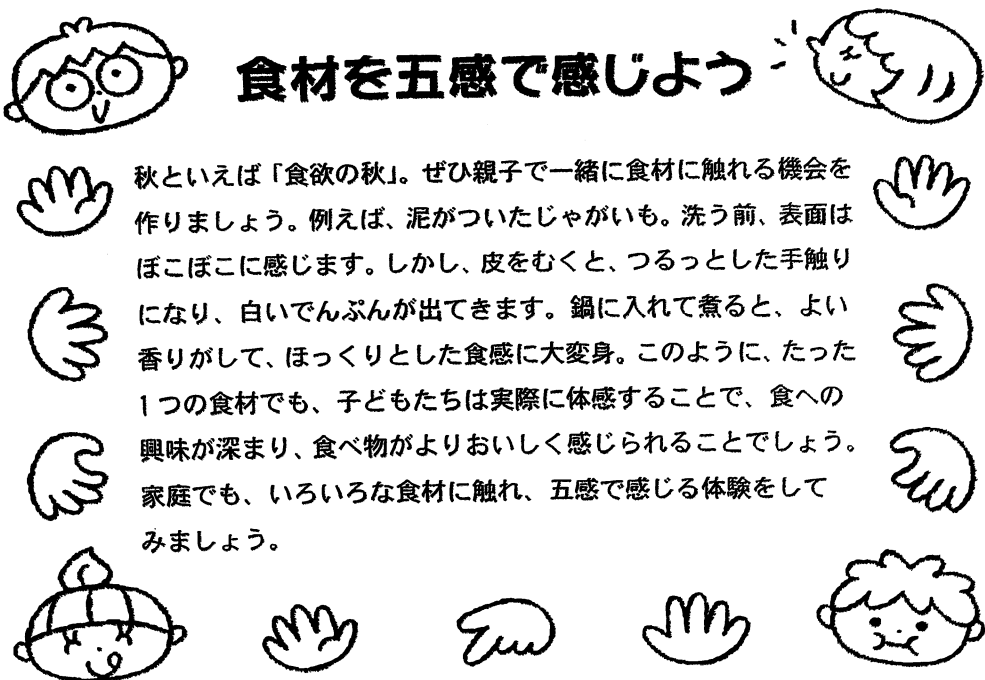 食材を五感で感じよう
秋といえば「食欲の秋」。ぜひ親子で一緒に食材に触れる機会を
作りましょう。例えば、泥がついたじゃがいも。洗う前、表面は
ぼこぼこに感じます。しかし、皮をむくと、つるっとした手触り
になり、白いでんぷんが出てきます。鍋に入れて煮ると、よい
香りがして、ほっくりとした食感に大変身。このように、たった
1つの食材でも、子どもたちは実際に体感することで、食への
興味が深まり、食べ物がよりおいしく感じられることでしょう。
家庭でも、いろいろな食材に触れ、五感で感じる体験をして
みましょう。